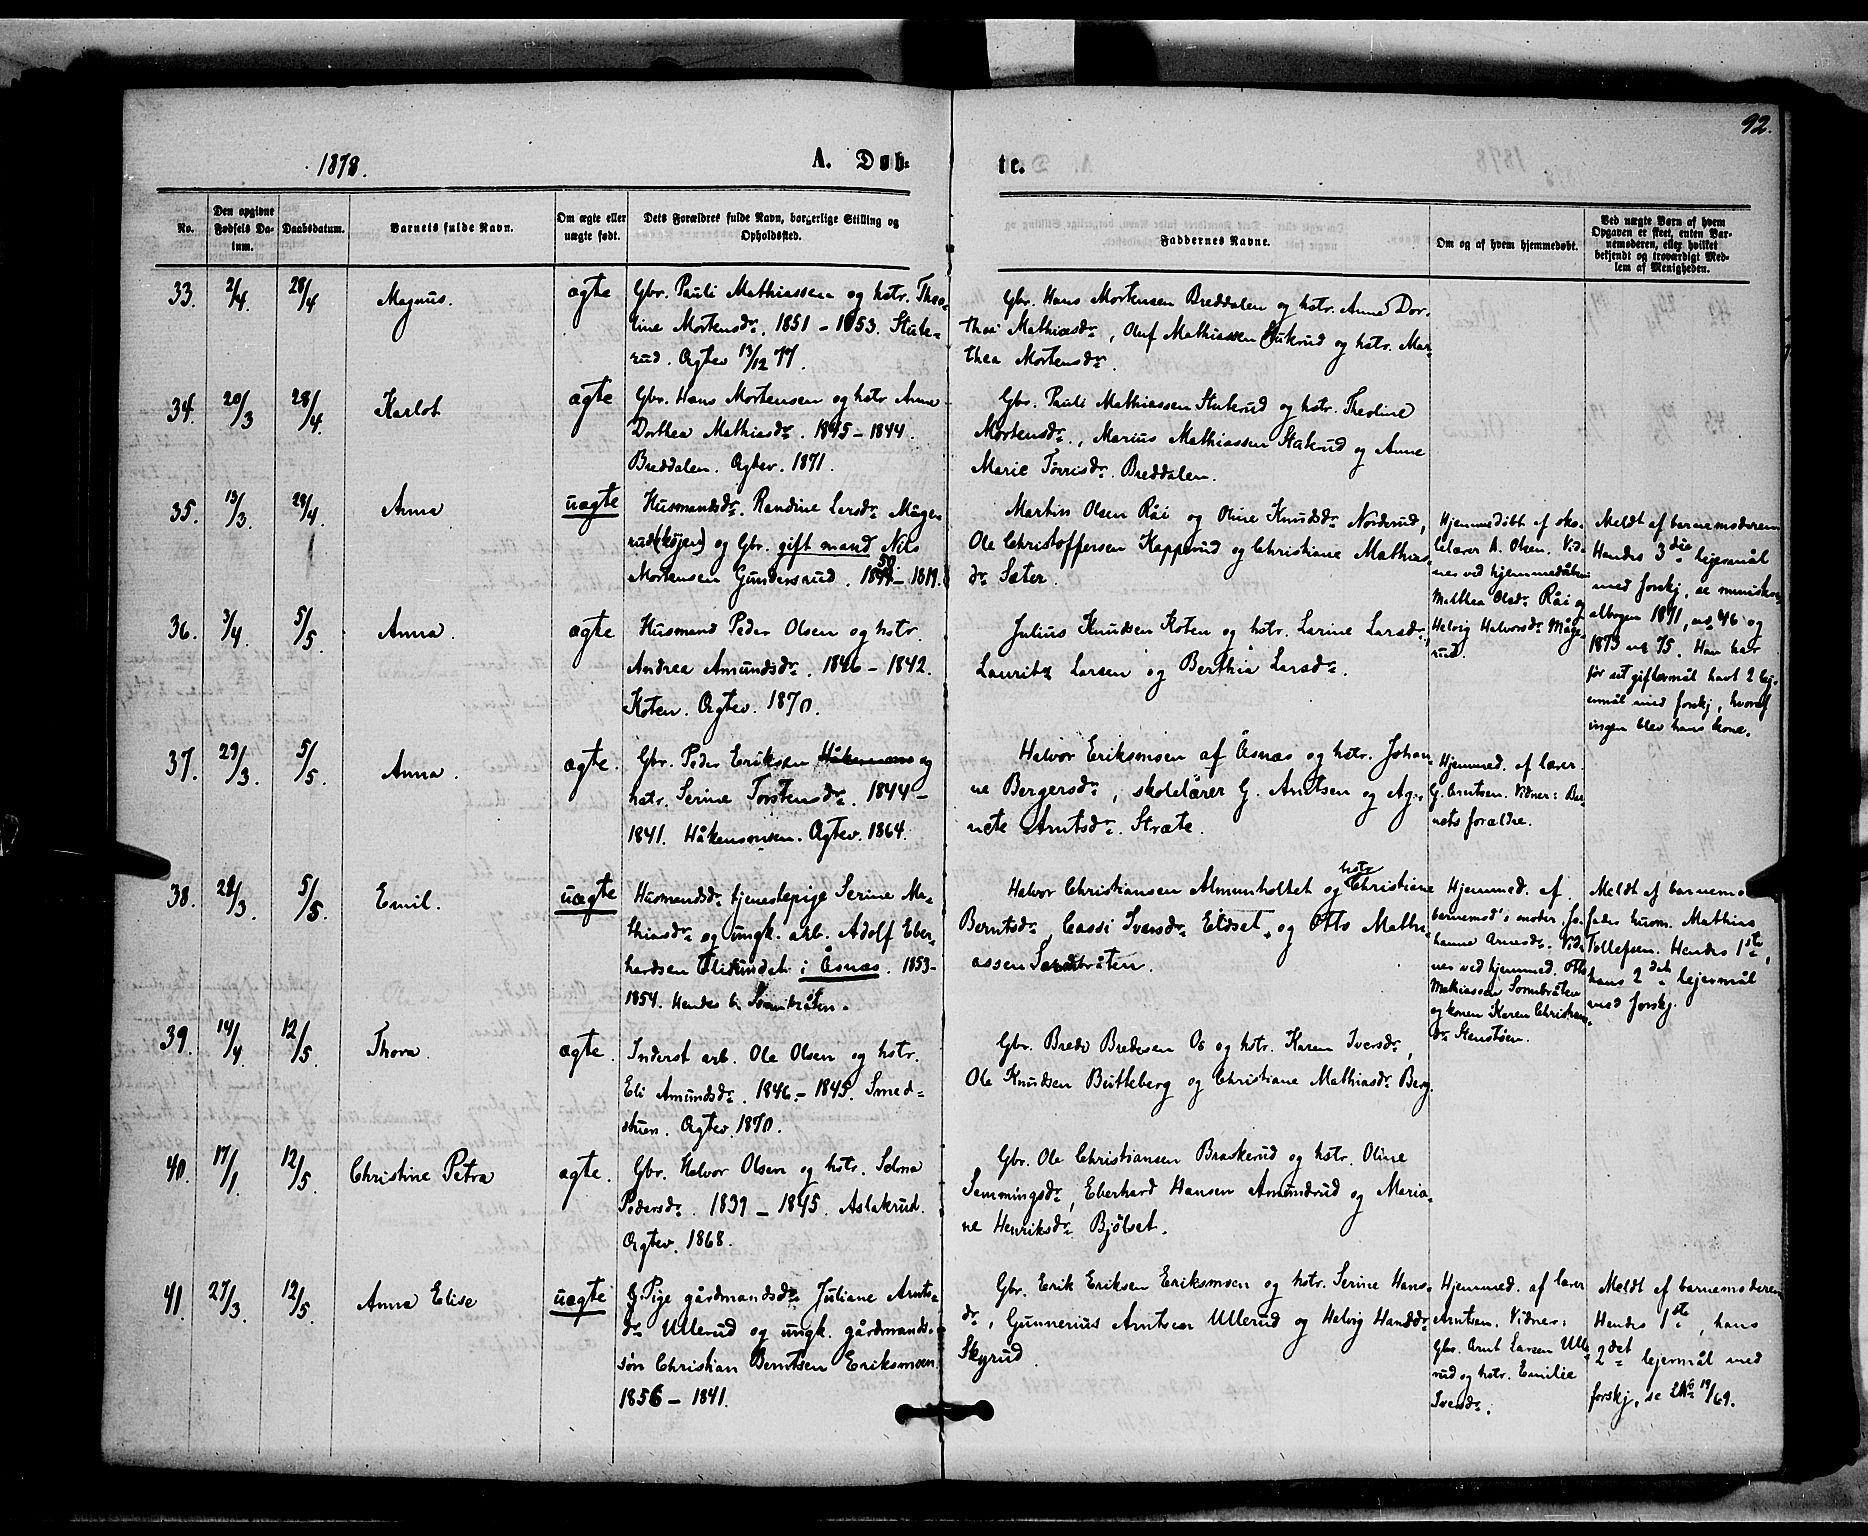 92.
1878.
A. Døb-
te.
No.
Den opgivne Fødsels Datum.
Daabsdatum.
Barnets fulde Navn.
Om ægte eller uægte født.
Dets Forældres fulde Navn, borgerlige Stilling og Opholdssted.
Faddernes Navne.
Om og af hvem hjemmedøbt.
Ved uægte Børn af hvem Opgaven er skeet, enten Barnemoderen, eller hvilket bekjendt og troværdigt Medlem af Menigheden.
33. 2/4 28/4 Magnus. ægte
Gbr. Pauli Mathiassen og hstr. Theo-
line Mortensdr. 1851 – 1853. Stuke-
rud. Ægtev. 13/12 77.
Gbr. Hans Mortensen Breddalen og hstr. Anne Dor-
thea Mathiasdr, Oluf Mathiassen Stukrud og hstr. Mar-
thea Mortensdr.
34. 20/3 28/4 Karlot ægte
Gbr. Hans Mortensen og hstr. Anne
Dorthea Mathiasdr. 1845 – 1844.
Breddalen. Ægtev. 1871.
Gbr. Pauli Mathiassen Stukerud og hstr. Theoline
Mortensdr., Marius Mathiassen Stukrud og Anne
Marie Torrisdr. Breddalen.
35. 13/3 28/4 Anna uægte
Husmandsdr. Randine Larsdr Måge-
rud og Gbr. gift mand Nils
Mortensen Gundersrud. 1850 – 1819.
Martin Olsen Råi og Oline Knudsdr Norderud,
Ole Christoffersen Kapperud og Christiane Mathias-
dr Sæter.
Hjemmedöbt af sko-
lelærer A. Olsen. Vid-
ner ved hjemmedåben
Mathea Olsdr Råi og
Helvig Halvorsdr Måge-
rud.
Meldt af barnemoderen
Hendes 3die lejersmål
med forskj, se ministeri-
albogen 1871, no 46 og
1873 no 75. Han har
før sit giftermål havt 2 lej-
ermål med forskj, hvoraf
ingen blev hans kone.
36. 3/4 5/5 Anna. ægte
Husmand Peder Olsen og hstr.
Andrea Amundsdr. 1846 – 1842.
Koten. Ægtev. 1870.
Julius Knudsen Koten og hstr. Larine Larsdr,
Lauritz Larsen og Berthia Larsdr.
37. 29/3 5/5 Anna. ægte.
Gbr. Peder Eriksen og
hstr. Serine Torstensdr. 1844 –
1841. Håkensmoen. Ægtev. 1864.
Halvor Eriksmoen af Åsnæs og hstr. Johan-
ne Bergersdr, skolelærer G. Arntsen og Ag-
nete Arntsdr. Stræte.
Hjemmed. af lærer
G. Arntsen. Vidner: Bar-
nets forældre.
38. 28/3 5/5 Emil. uægte
Husmandsdr tjenestepige Serine Ma-
thiasdr og ungk. arb. Adolf Eber-
hardsen i Åsnæs. 1853-
1854. Hendes h. Sormbråten.
Halvor Christiansen Almenholtet og hstr Christiane
Berntsdr, Cassi Iversdr Eldset, og Otto Mathi-
assen Sormbråten.
Hjemmed. af
barnemod's moder Jo-
hanne Arnesdr. Vid-
ner ved hjemmed. Otto
Mathiassen Sormbråten
og konen Karen Christians-
dr Stenstøen.
Meldt af barnemo-
ders husm. Mathias
Tollefsen. Hendes 1ste,
hans 2det lejermål
med forskj.
39. 14/4 12/5 Thora. ægte.
Inderst arb. Ole Olsen og hstr.
Eli Amundsdr. 1846 – 1845. Smed-
stuen. Ægtev. 1870.
Gbr. Brede Bredesen Os og hstr. Karen Iversdr,
Ole Knudsen Butteberg og Christiane Mathiasdr Berg.
40. 17/1 12/5 Christine Petra ægte.
Gbr. Halvor Olsen og hstr. Selma
Pedersdr. 1839 – 1845. Aslakrud.
Ægtev. 1868.
Gbr. Ole Christiansen Braskerud og hstr. Oline
Semmingsdr, Eberhard Hansen Amundrud og Maria-
ne Henriksdr Bjölset.
41. 27/3 12/5 Anna Elise uægte
Pige gårdmandsdr Juliane Arnts-
dr Ullerud og ungk. gårdmands-
søn Christian Berntsen Eriksmoen
1856 – 1841.
Gbr. Erik Eriksen Eriksmoen og hstr. Serine Hans-
dr, Gunnerius Arntsen Ullerud og Helvig Hansdr
Skyrud.
Hjemmed. af lærer
Arntsen. Vidner:
Gbr. Arnt Larsen Ulle-
rud og hstr. Emilie
Iversdr.
Meldt af barnemoderen
Hendes 1ste, hans
2det lejermål med
forskj, se 19/69.